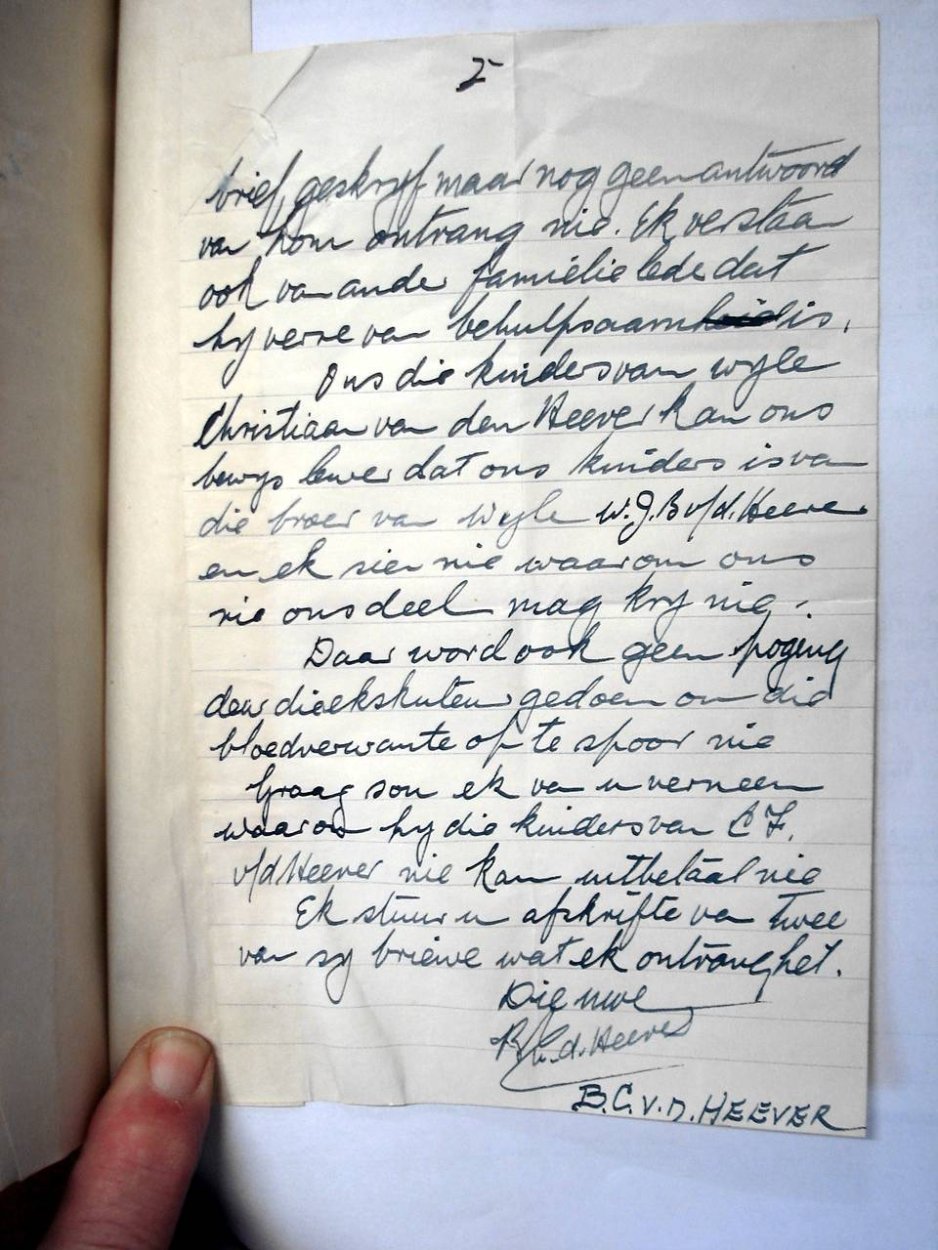 2
brief, geskryf maar nog geen antwoord
van hom ontvang nie. Ek verstaan
ook van ander familie lede dat
hy verre van behulpsaam is.
Ons die kinders van wyle
Christiaan van den Heever kan ons
bewys lewer dat ons kinders is van
die broer van wyle W.J.B v/d. Heever
en ek sien nie waarom ons
nie ons deel mag kry nie.
Daar word ook geen poging
deur die eksekuteur gedoen om die
bloedverwante op te spoor nie
Graag sou ek van u verneem
waarom hy die kinders van C F.
v/d Heever nie kan uitbetaal nie
Ek stuur u afskrifte van twee
van sy briewe wat ek ontvang het.
Die uwe
B.C.v.d. Heever
B.C.V.D. HEEVER